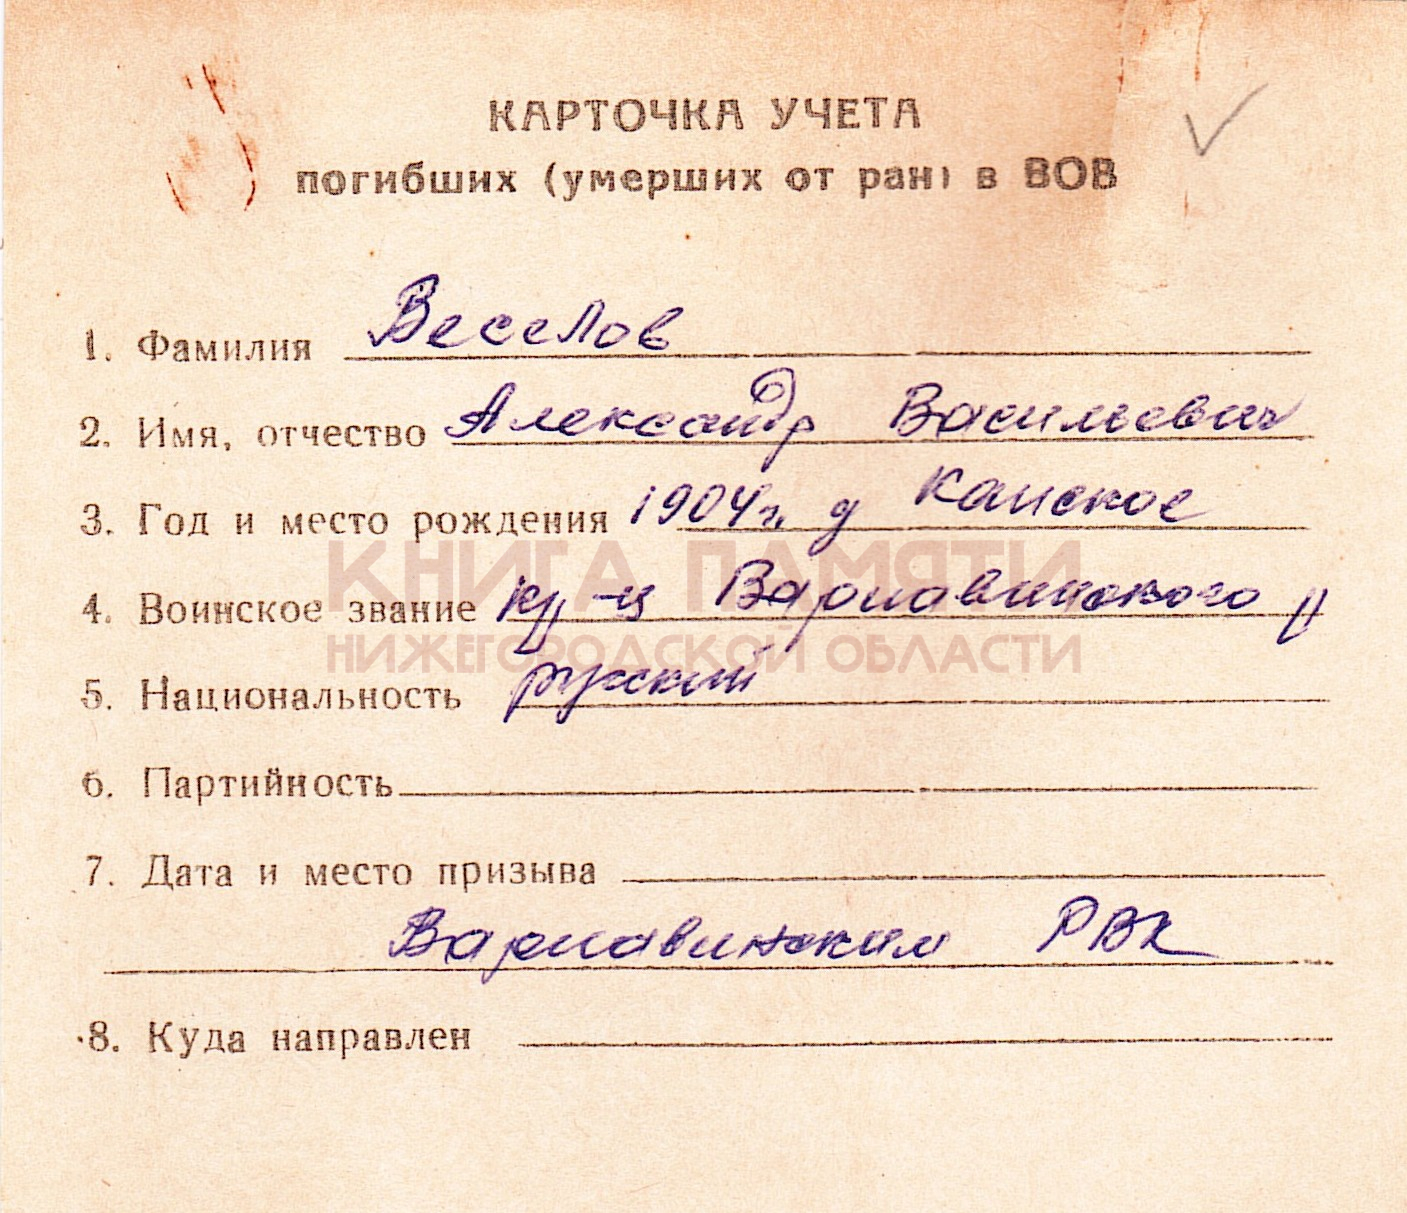 КАРТОЧКА УЧЕТА
погибших (умерших от ран) в ВОВ
1. Фамилия Веселов
2. Имя, отчество Александр Васильевич
3. Год и место рождения 1904г. д Канское
КНИГА ПАМЯТИ
4. Воинское звание кр-ц Варнавинского р
НИЖЕГОРОДСКОЙ ОБЛАСТИ
5. Национальность русский
6. Партийность
7. Дата и место призыва
Варнавинским РВК
8. Куда направлен